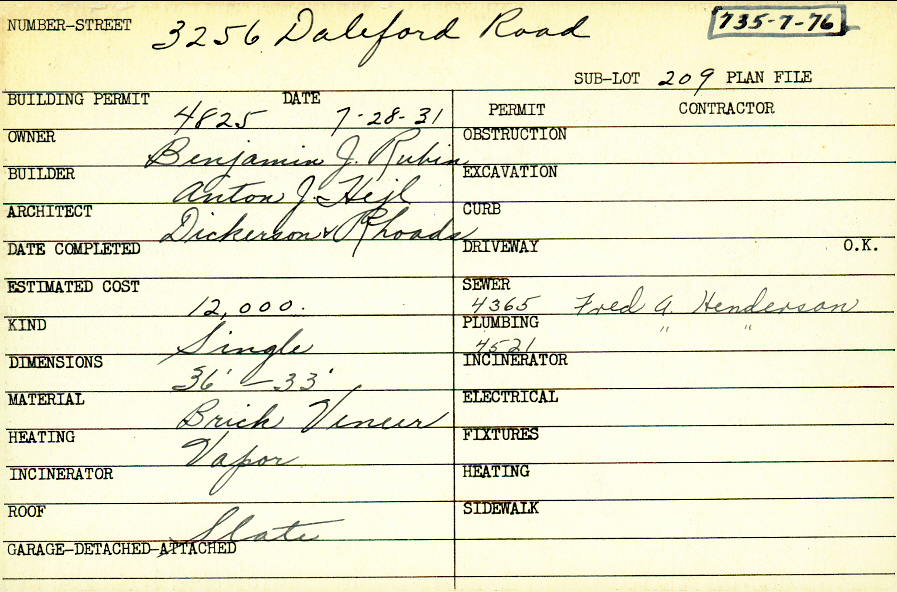 NUMBER-STREET 3256 Daleford Road 735-7-76
SUB-LOT 209 PLAN FILE
BUILDING PERMIT 4825 DATE 7-28-31
OWNER Benjamin J. Rubin
BUILDER Anton J. Hejl
ARCHITECT Dickerson & Rhoads
DATE COMPLETED
ESTIMATED COST 12,000.
KIND Single
DIMENSIONS 36' - 33'
MATERIAL Brick Veneer
HEATING Vapor
INCINERATOR
ROOF Slate
GARAGE-DETACHED-ATTACHED
PERMIT CONTRACTOR
OBSTRUCTION
EXCAVATION
CURB
DRIVEWAY O.K.
SEWER 4365 Fred A. Henderson
PLUMBING 4521 " "
INCINERATOR
ELECTRICAL
FIXTURES
HEATING
SIDEWALK